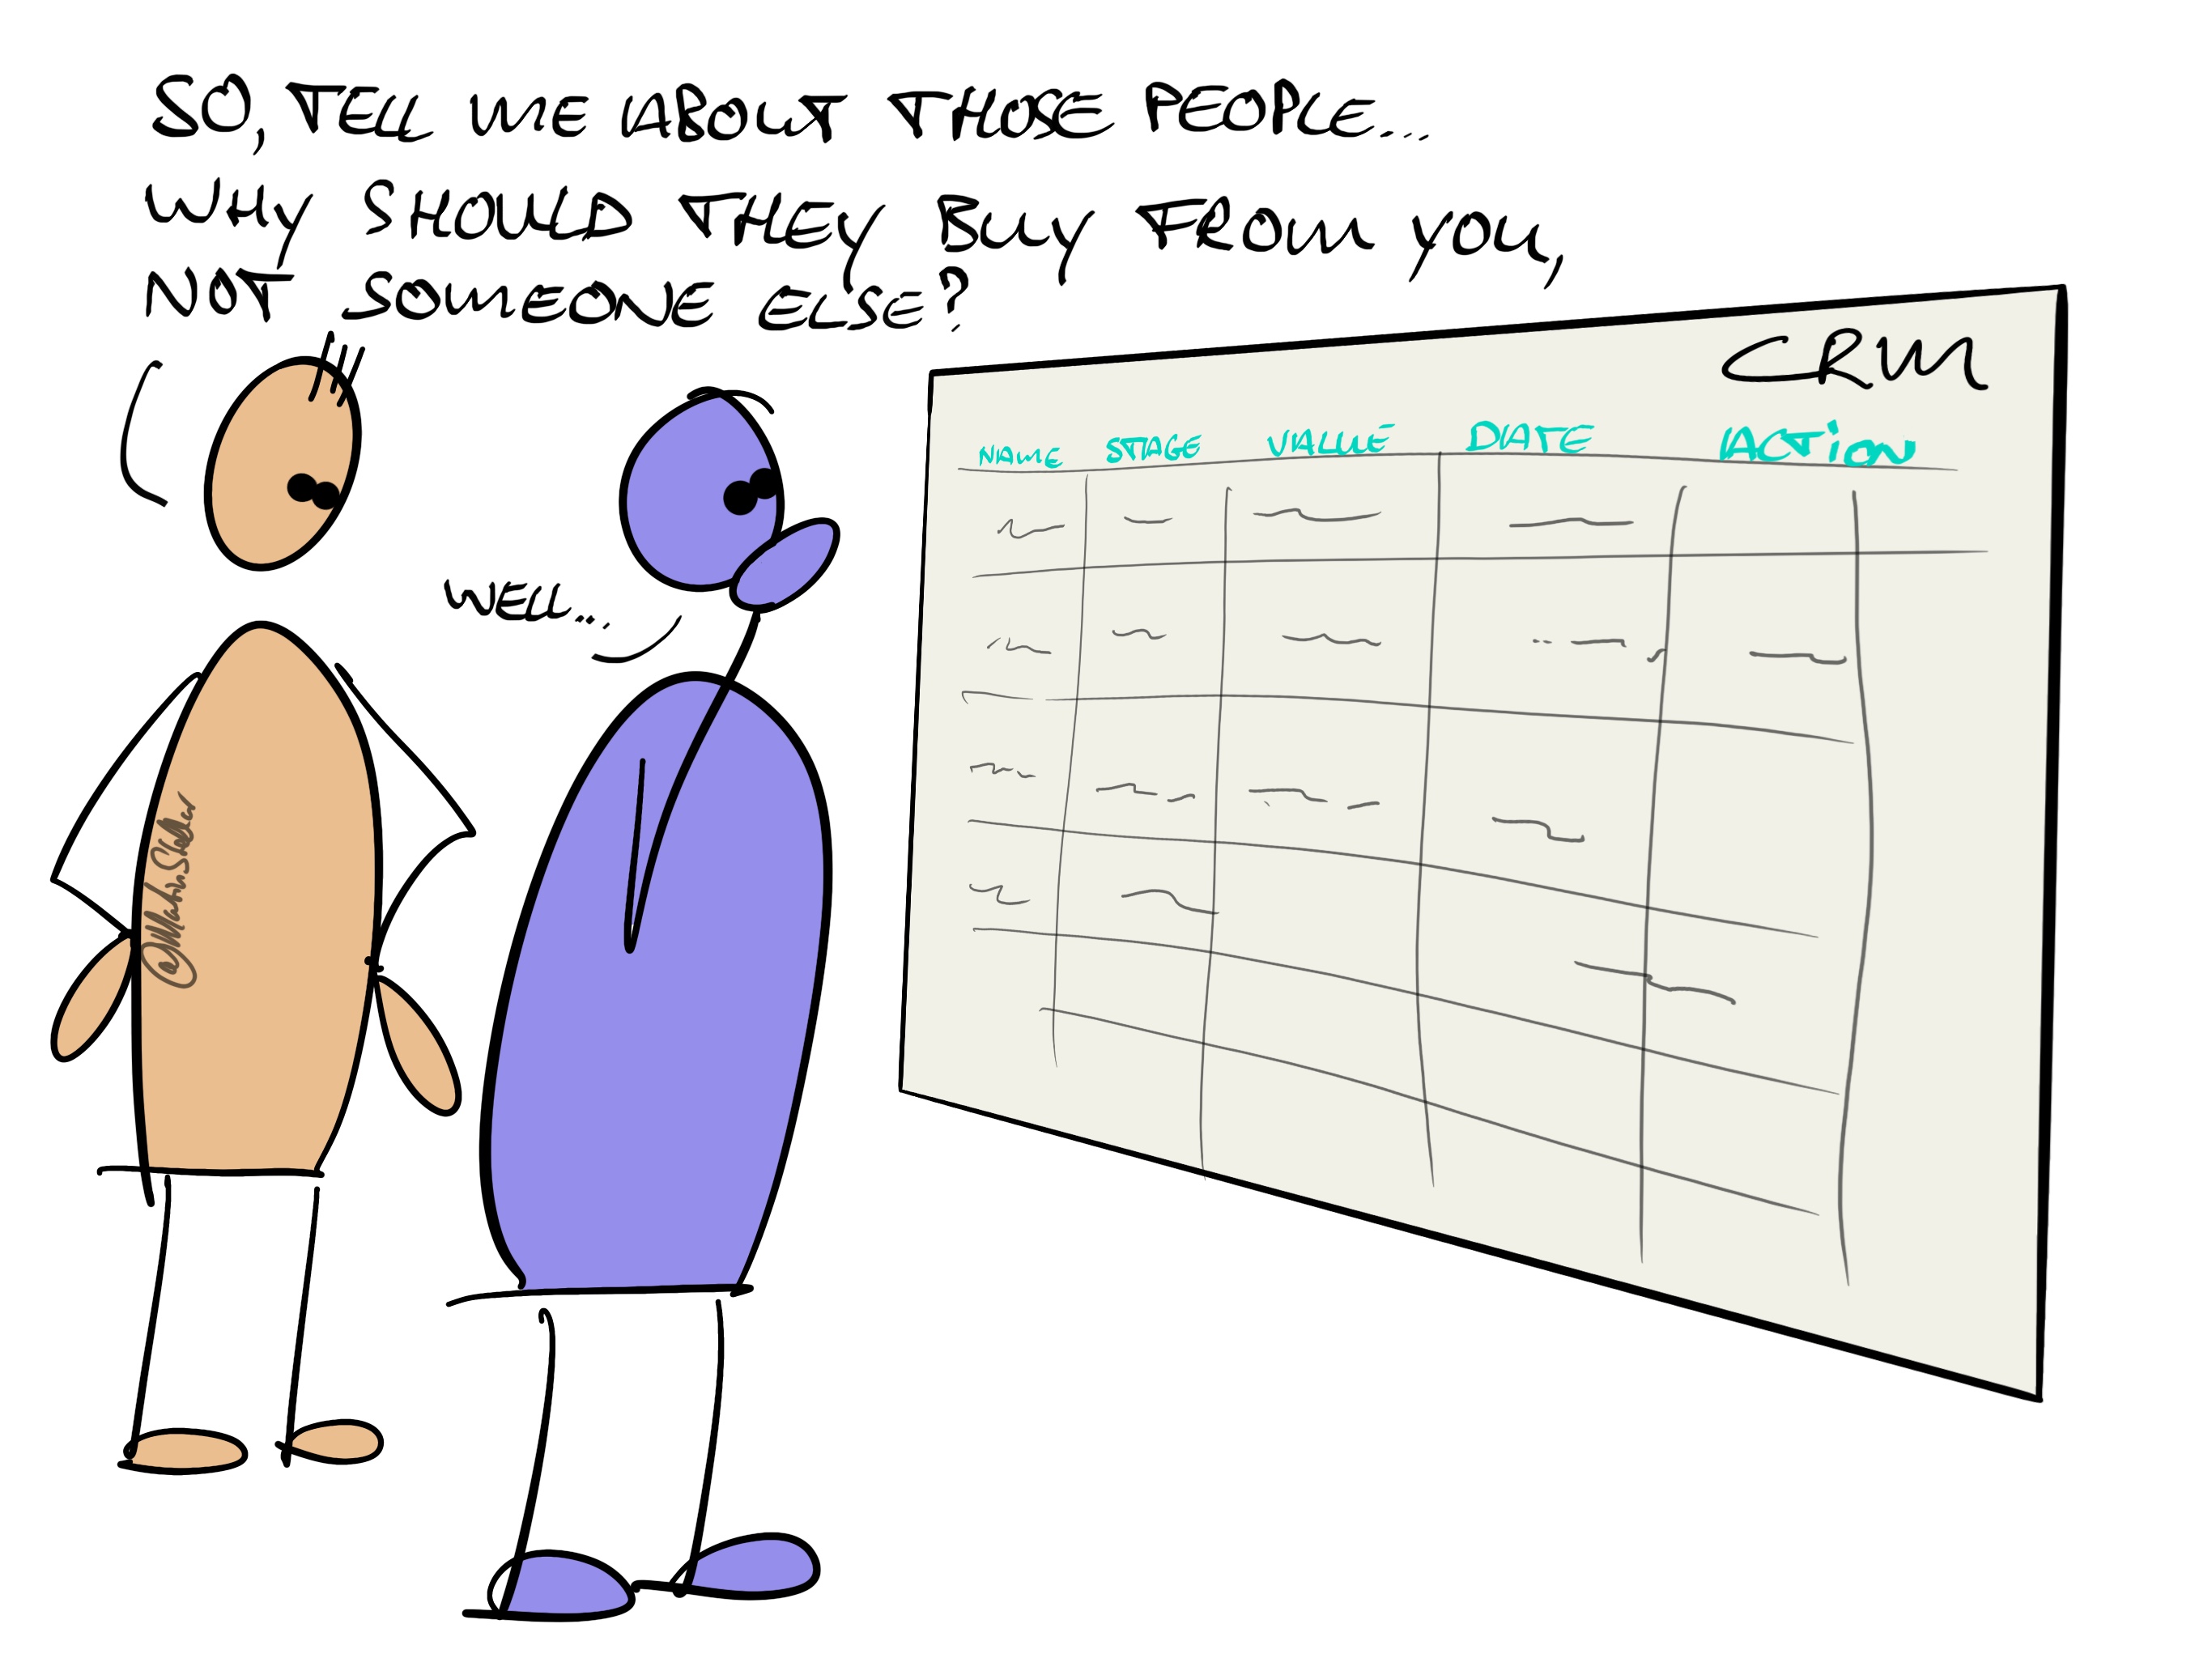 SO, TELL ME ABOUT THOSE PEOPLE...
WHY SHOULD THEY BUY FROM YOU,
NOT SOMEONE ELSE?
WELL...
CRM
NAME STAGE VALUE DATE ACTION